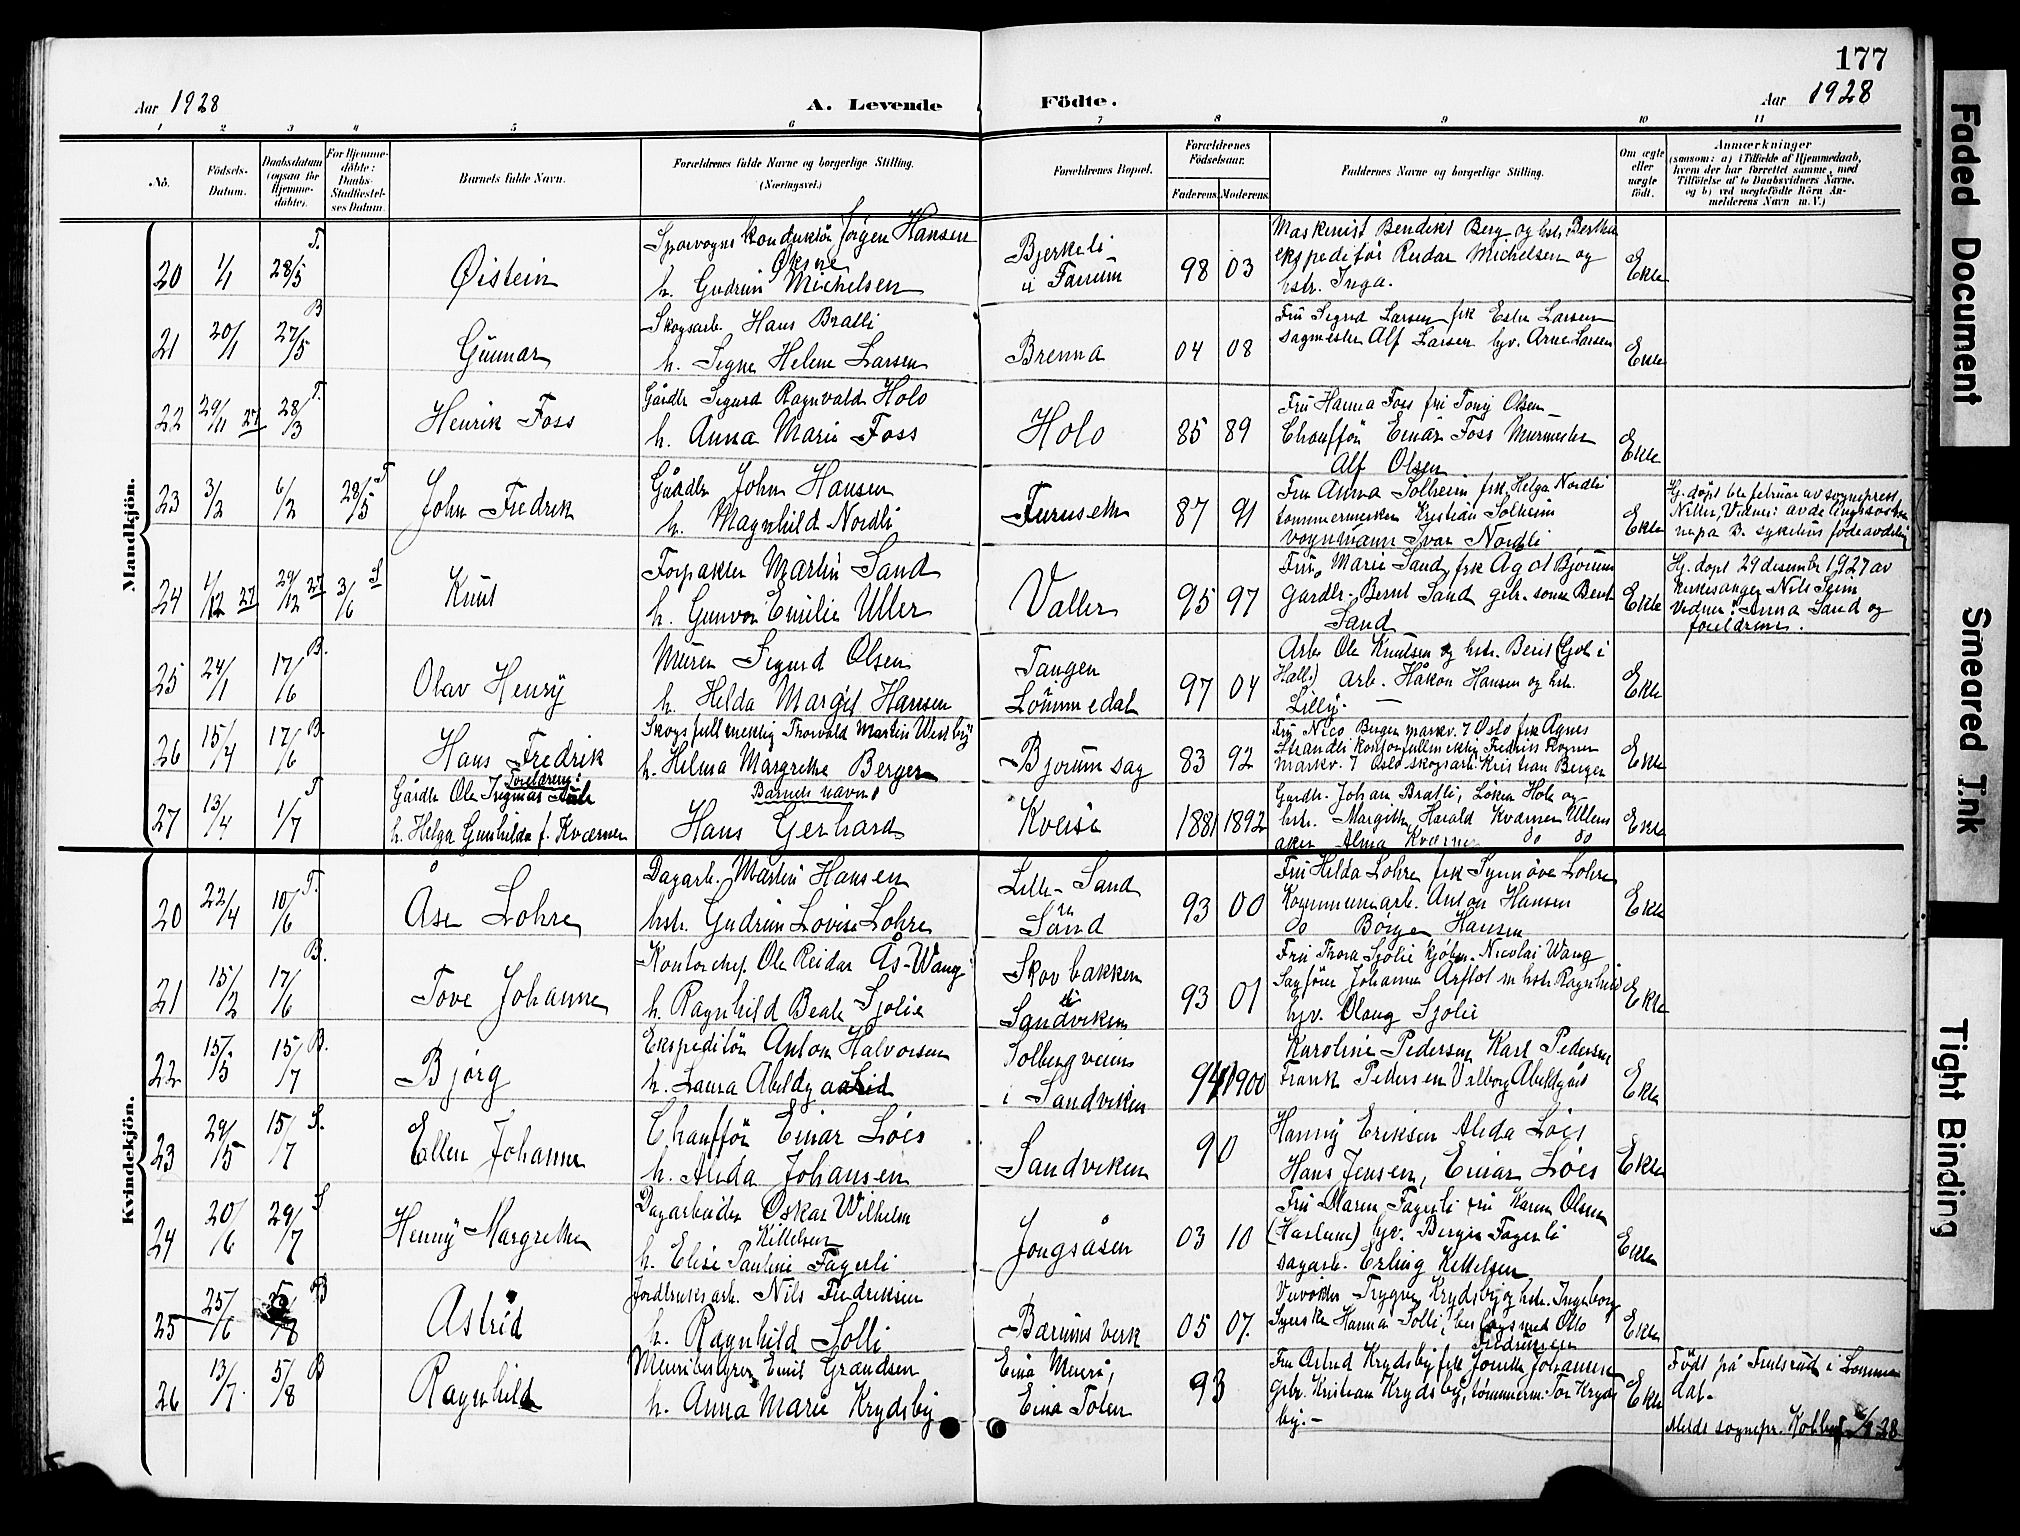 177
Aar 1928
A. Levende Födte.
Aar 1928
1 2 3 4 5 6 7 8 9 10 11
No.
Födsels-Datum.
Daabsdatum (ogsaa for Hjemme-döbte).
For Hjemme-döbte: Daabs-Stadfæstel-ses Datum.
Barnets fulde Navn.
Forældrenes fulde Navne og borgerlige Stilling.
(Næringsvei.)
Forældrenes Bopæl.
Forældrenes Födselsaar.
Faderens. Moderens.
Faddernes Navne og borgerlige Stilling.
Om ægte eller uægte födt.
Anmærkninger
(saasom: a) i Tilfælde af Hjemmedaab,
hvem der har forrettet samme, med
Tilföielse af to Daabsvidners Navne,
og b) ved uægtefödte Börn An-
melderens Navn m. V.)
Mandkjön.
20 1/1 28/5 T. Øistein
Sporvogns konduktør Jørgen Hansen
Øksne
h. Gudrun Michelsen
Bjerkeli
i Tanum
98 03
Maskinist Bendikt Berg og hstr. Berthea
ekspeditør Reidar Michelsen og
hstr. Inga.
Ekte
21 20/1 27/5 B Gunnar
Skogsarb. Hans Bratli
h. Signe Helene Larsen
Brenna
04 08
Fru Sigrid Larsen frk Ester Larsen
sagmester Alf Larsen hgv. Arne Larsen
Ekte
22 29/11 27 28/3 T. Henrik Foss
Gårdbr Sigurd Ragnvald Holo
h. Anna Marie Foss
Holo
85 89
Fru Hanna Foss fru Tony Olsen –
Chauffør Einar Foss Murmester
Alf Olsen
Ekte
23 3/2 6/2 28/5 T John Fredrik
Gårdbr John Hansen
h. Magnhild Nordli
Furuseth
87 91
Fru Anna Solheim frk. Helga Nordli
tømmermester Kristian Solheim
vognmann Ivar Nordli
Ekte
Hj. døpt 6te februar av sogneprest
24 1/12 27 29/12 27 3/6 S Knut
Forpakter Martin Sand
h. Gunvor Emilie Uller
Valler
95 97
Fru Marie Sand, frk Agot Bjørum
Gardbr. Bernt Sand gbr. sønn Bernt
Sand
Ekte
Hj. døpt 29 desember 1927 av
kirkesanger Nils Seim
vidner: Anna Sand og
foreldrene.
25 24/1 17/6 B. Olav Henry
Murer Sigurd Olsen
h. Hilda Margit Hansen
Tangen
i
Lommedal
97 04
Arb. Ole Knutsen og hstr. Berit (Gol i
Hall.) Arb. Håkon Hansen og hstr.
Lilly. –
Ekte
26 15/4 17/6 B. Hans Fredrik
Skogsfullmektig Thorvald Martin Westby
h. Helma Margrethe Berger
Bjorum sag
83 92
Fru Nico Berger markv. 7 Oslo frk Agnes
Strandli kontorfullmektig Fredrik Rogner
markv. 7 Oslo skogsarb. Kristian Berger
Ekte
27 13/4 1/7 T
Foreldrene:
Gårdbr Ole Ingmar
h. Helga Gunhilda f. Kværner
Barnets navn:
Hans Gerhard
Kveise
1881 1892
Gardbr. Johan Bratli, Løken Hole og
hstr. Margith, Harald Kværner Ullens
aker Alma Kværner do do
Ekte
Kvindekjön.
20 22/4 10/6 T. Åse Lohre
Dagarb. Martin Hansen
hstr. Gudrun Lovise Lohre
Lille-Sand
Sand
93 00
Fru Hilda Lohre frk Synnøve Lohre
Kommunearb. Anton Hansen
do Børge Hansen
Ekte
21 15/2 17/6 B. Tove Johanne
Kontorchef. Ole Reidar Ås-Wang
h. Ragnhild Beate Sjølie
Skovbakken
i
Sandviken
93 01
Fru Thora Sjølie kjøbm. Nicolai Wang
Sagfører Johannes m hstr Ragnhild
hgv. Olaug Sjølie
Ekte
22 15/5 15/7 B. Bjørg
Ekspeditør Anton Halvorsen
h. Laura
Solbergveien
i Sandviken
94 1900
Karoline Pedersen Karl Pedersen
Frank Pedersen Valborg
Ekte
23 29/5 15/7 S. Ellen Johanne
Chauffør Einar Löes
h. Alida Johansen
Sandviken
90
Hanny Eriksen Alida Löes
Hans Jensen, Einar Löes
Ekte
24 20/6 29/7 S Henny Margrethe
Dagarbeider Oskar Wilhelm
Kittelsen
h. Elise Pauline Fagerli
Jongsåsen
03 10
Fru Maren Fagerli fru Karen Olsen
(Haslum) hgv. Berger Fagerli
dagarb. Erling Kittelsen
Ekte
25 25/6 5/8 B Astrid
Jordbruksarb. Nils Fredriksen
h. Ragnhild Solli
Bærums verk
05 07.
Veivokter Trygve Krydsby og hstr. Ingeborg
Syerske Hanna Solli, Otto
Fredriksen
Ekte
26 13/7. 5/8 B Ragnhild
Menibestyrer Emil Grandsen
h. Anna Marie Krydsby
Eina Meieri,
Eina Toten
93
Fru Astrid Krydsby frk Johansen
Gbr. Kristian Krydsby, tømmerm. Tor Kryds
by. –
Ekte
Født på i Lommedal.
Meldt sognepr. Kolbu 28
Faded Document
Smeared Ink
Tight Binding